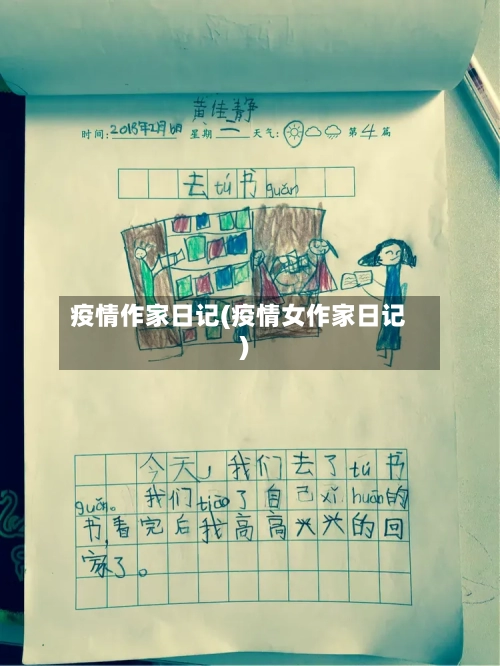 黄佳静
时间:2015年2月10日 星期二 天气: 第4篇
去tú书guǎn
疫情作家日记(疫情女作家日记
)
今天,我们去了tú书
guǎn。我们tiāo了自己xǐ huān的
书,看完后我高高兴兴的回
家了。